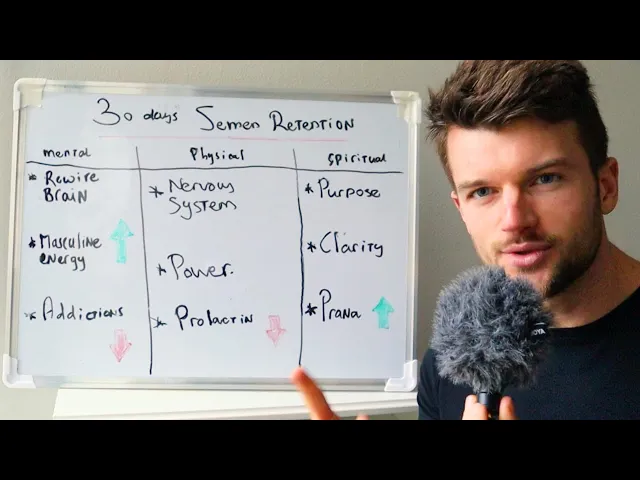 30 days Semen Retention
mental
Physical
Spiritual
* Rewire
Brain
* Masculine
energy
* Addictions
* Nervous
System
* Power.
* Prolactin
* Purpose
* Clarity
* Prana